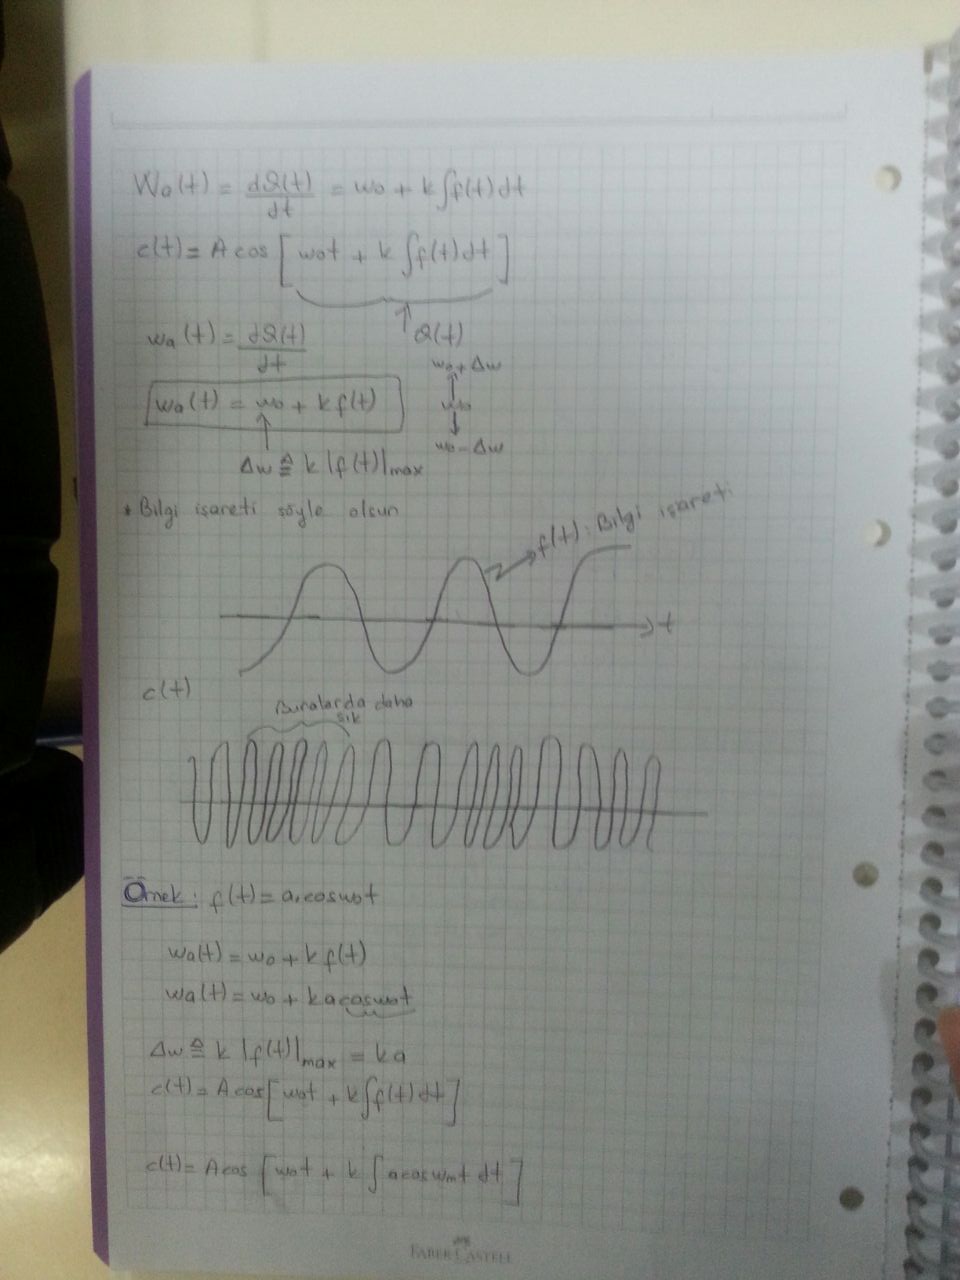 Wa(t) = dΩ(t)/dt = w₀ + k∫f(t)dt
c(t) = A cos [w₀t + k ∫f(t)dt]
Ω(t)
wa(t) = dΩ(t)/dt
w₀ + Δw
wa(t) = w₀ + kf(t)
w₀
w₀ - Δw
Δw ≙ k |f(t)|max
* Bilgi işareti şöyle olsun
f(t): Bilgi işareti
t
c(t)
Buralarda daha
sık
Örnek: f(t) = a.cosw₀t
wa(t) = w₀ + k f(t)
wa(t) = w₀ + k a cosw₀t
Δw ≙ k |f(t)|max = ka
c(t) = A cos[w₀t + k∫f(t)dt]
c(t) = A cos [w₀t + k ∫ a cos wmt dt]
FABER-CASTELL